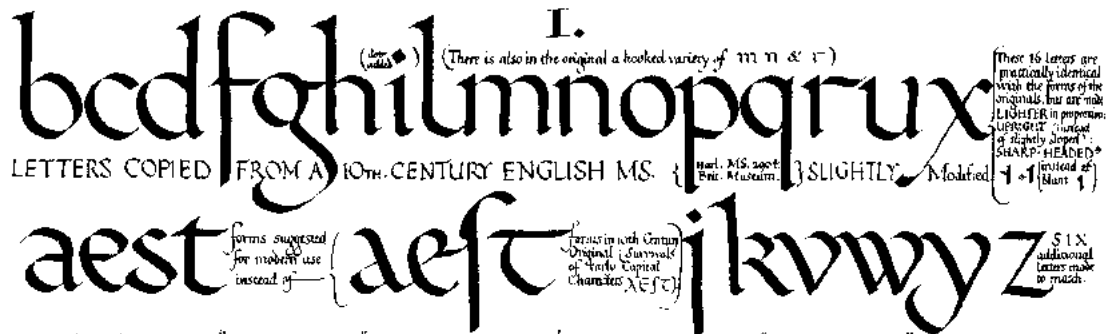 I.
(dot added ◆) (There is also in the original a hooked variety of m n & r)
bcdfghilmnopqrux
These 16 letters are
practically identical
with the forms of the
originals, but are made
LIGHTER in proportion;
UPRIGHT (instead
of slightly sloped);
SHARP-HEADED
instead of
blunt
LETTERS COPIED FROM A 10TH. CENTURY ENGLISH MS. {Harl. MS. 2904. Brit. Museum.} SLIGHTLY Modified
aest
forms suggested
for modern use
instead of
aeſt
forms in 10th Century
Original (Survivals
of Early Capital
Characters
jkvwyz
SIX
additional
letters made
to match.